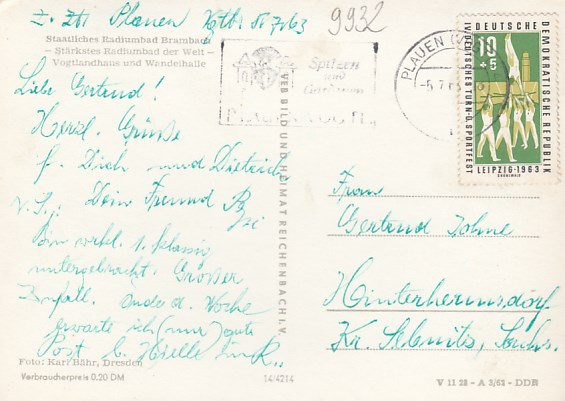 z. Zt. Plauen
9932
Staatliches Radiumbad Brambach
– Stärkstes Radiumbad der Welt –
Vogtlandhaus und Wandelhalle
Liebe Gertrud!
Herzl. Grüße
f. Dich und Dietrich
Dein Freund
Bin wirkl. 1. klassig
untergebracht. Großer
Zufall. Ende d. Woche
erwarte ich (nur) gute
Post b.
Foto: Karl Bähr, Dresden
Verbraucherpreis 0,20 DM
14/4214
VEB BILD UND HEIMAT REICHENBACH I. V.
Spitzen
und
Gardinen
PLAUEN
-5.7.63
DEUTSCHE DEMOKRATISCHE REPUBLIK
IV. DEUTSCHES TURN- U. SPORTFEST
10
+5
LEIPZIG · 1963
Frau
Gertrud
Hinterhermsdorf
Kr. Sebnitz, Sachs.
V 11 28 – A 3/63 – DDR